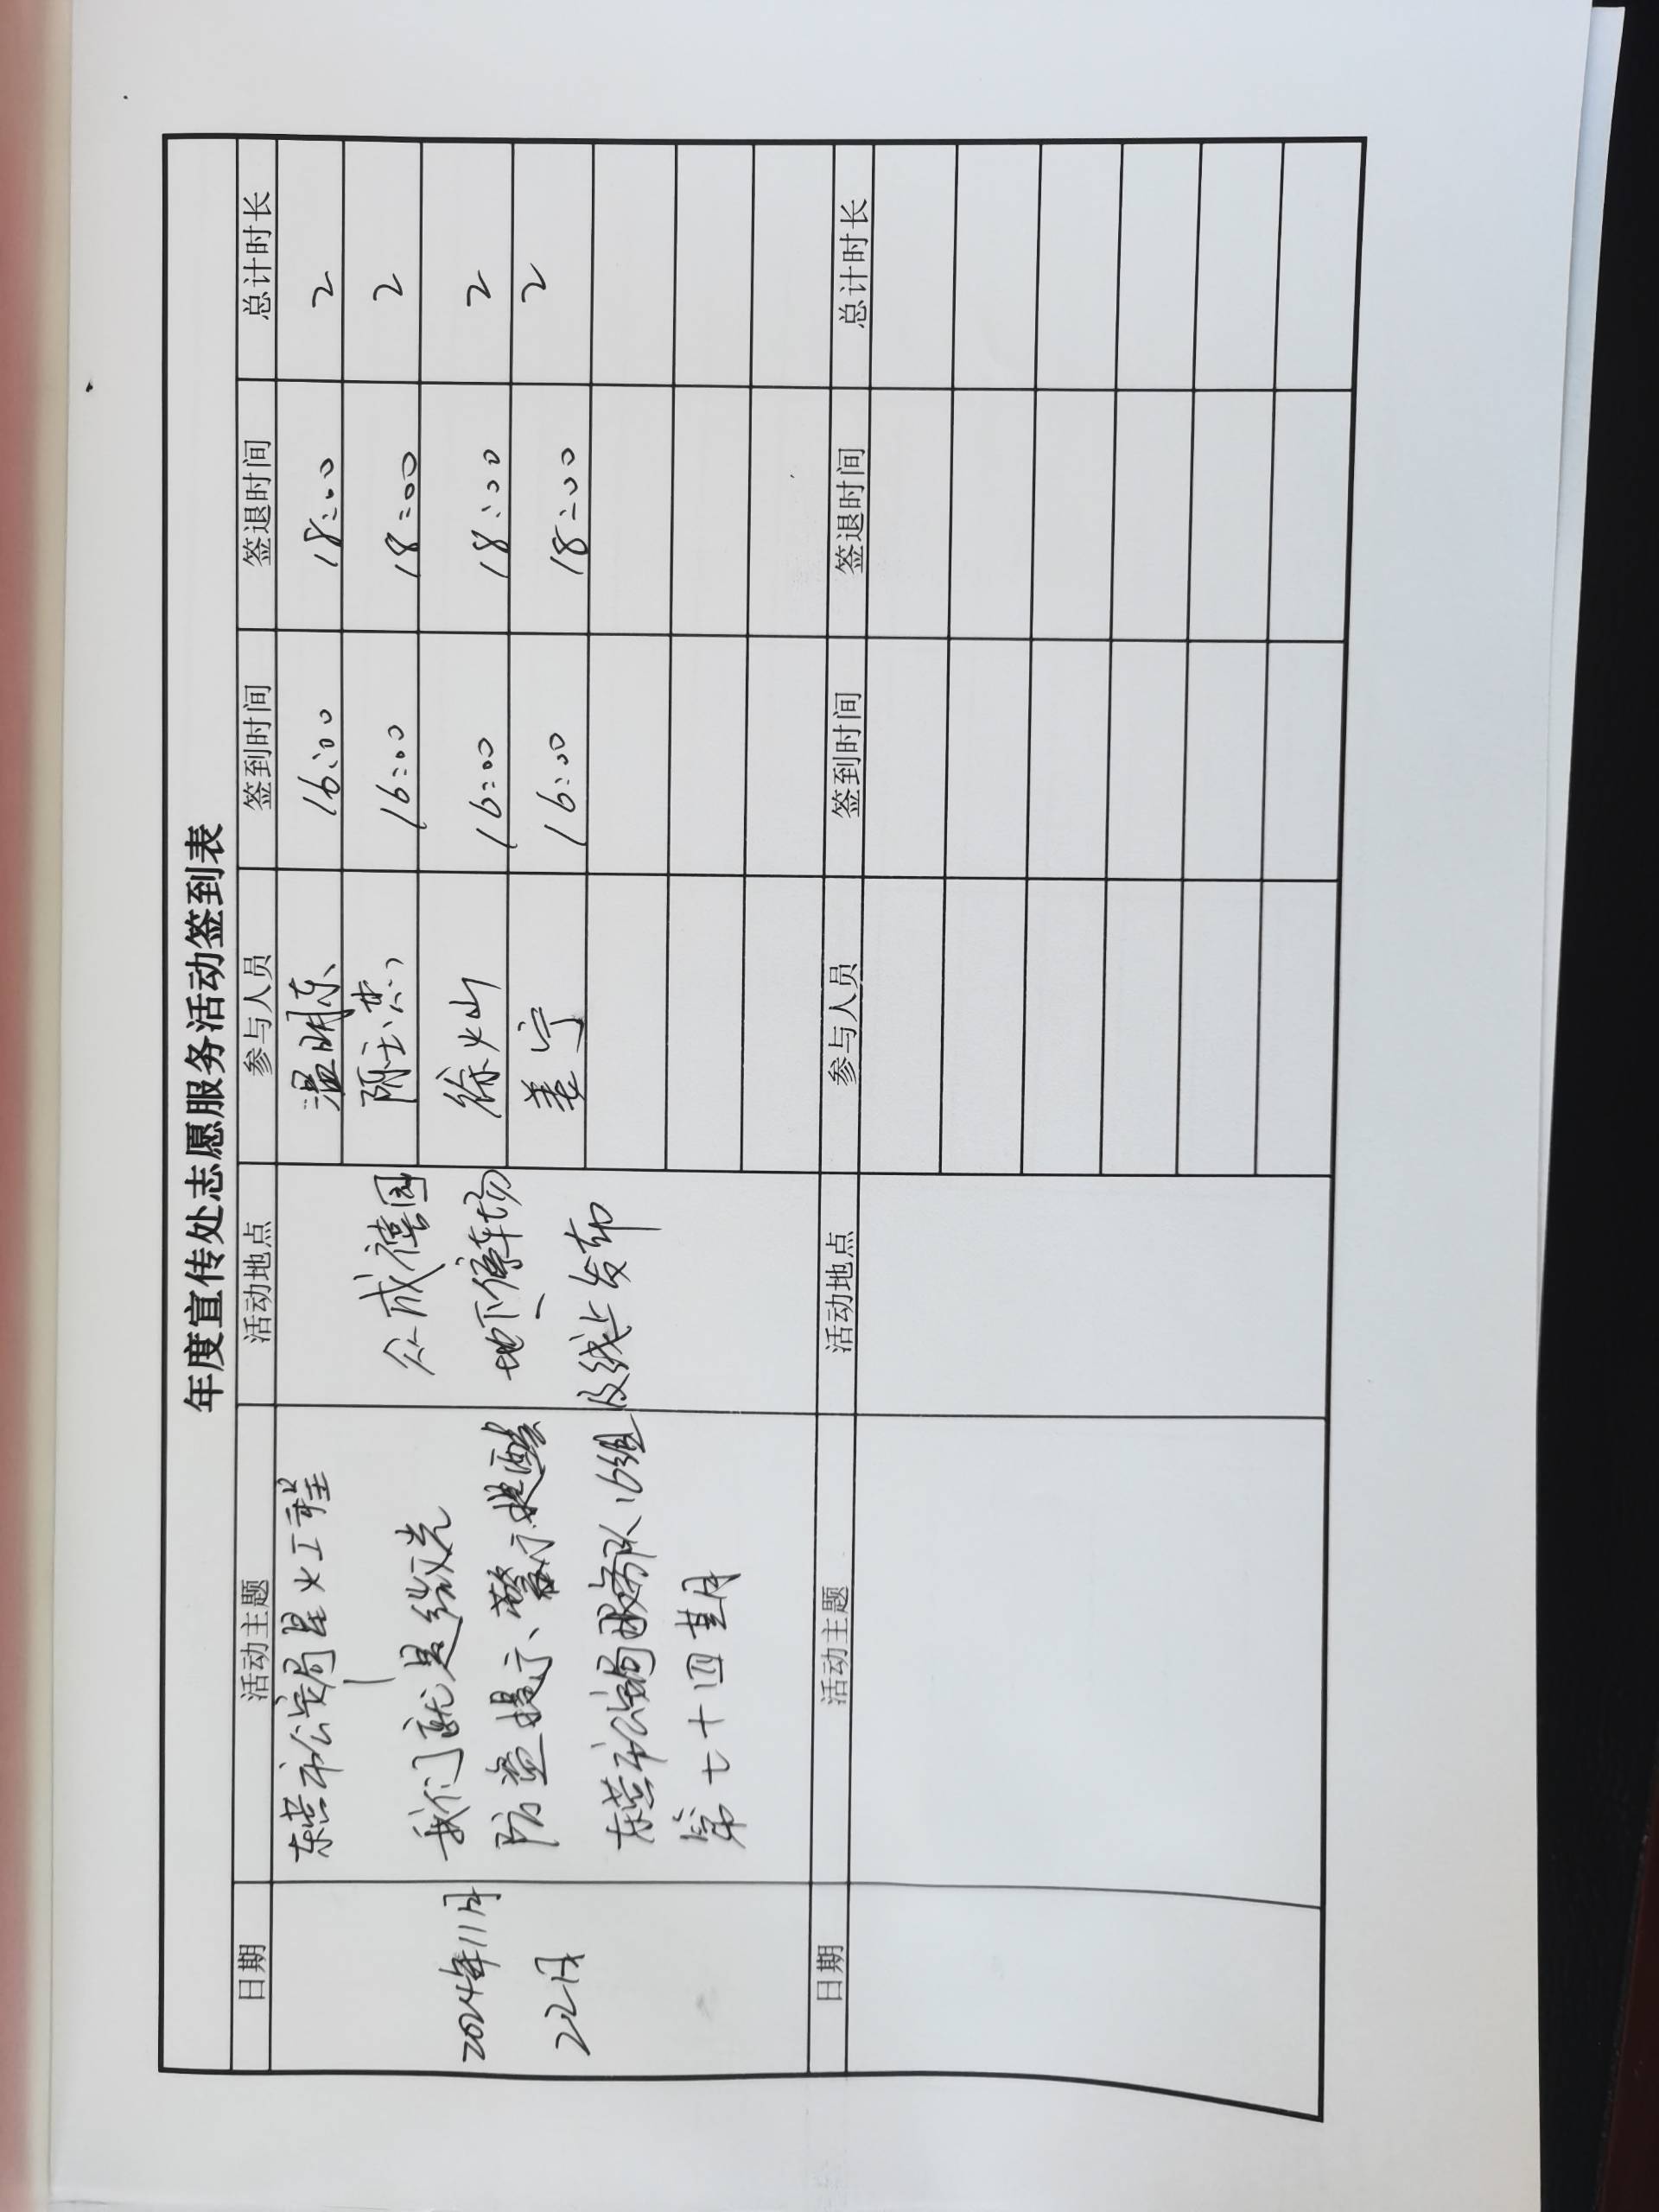 年度宣传处志愿服务活动签到表
日期 活动主题 活动地点 参与人员 签到时间 签退时间 总计时长
2024年11月
22日
东莞市公安局星火工程
我们就是给光
防盗提示、警示提醒
东莞市公安局服务队16组
第七十四期
众成禧园
地下停车场
及线上发布
温明东 16:00 18:00 2
陈玉杰 16:00 18:00 2
徐灿 16:00 18:00 2
姜宁 16:00 18:00 2
日期 活动主题 活动地点 参与人员 签到时间 签退时间 总计时长